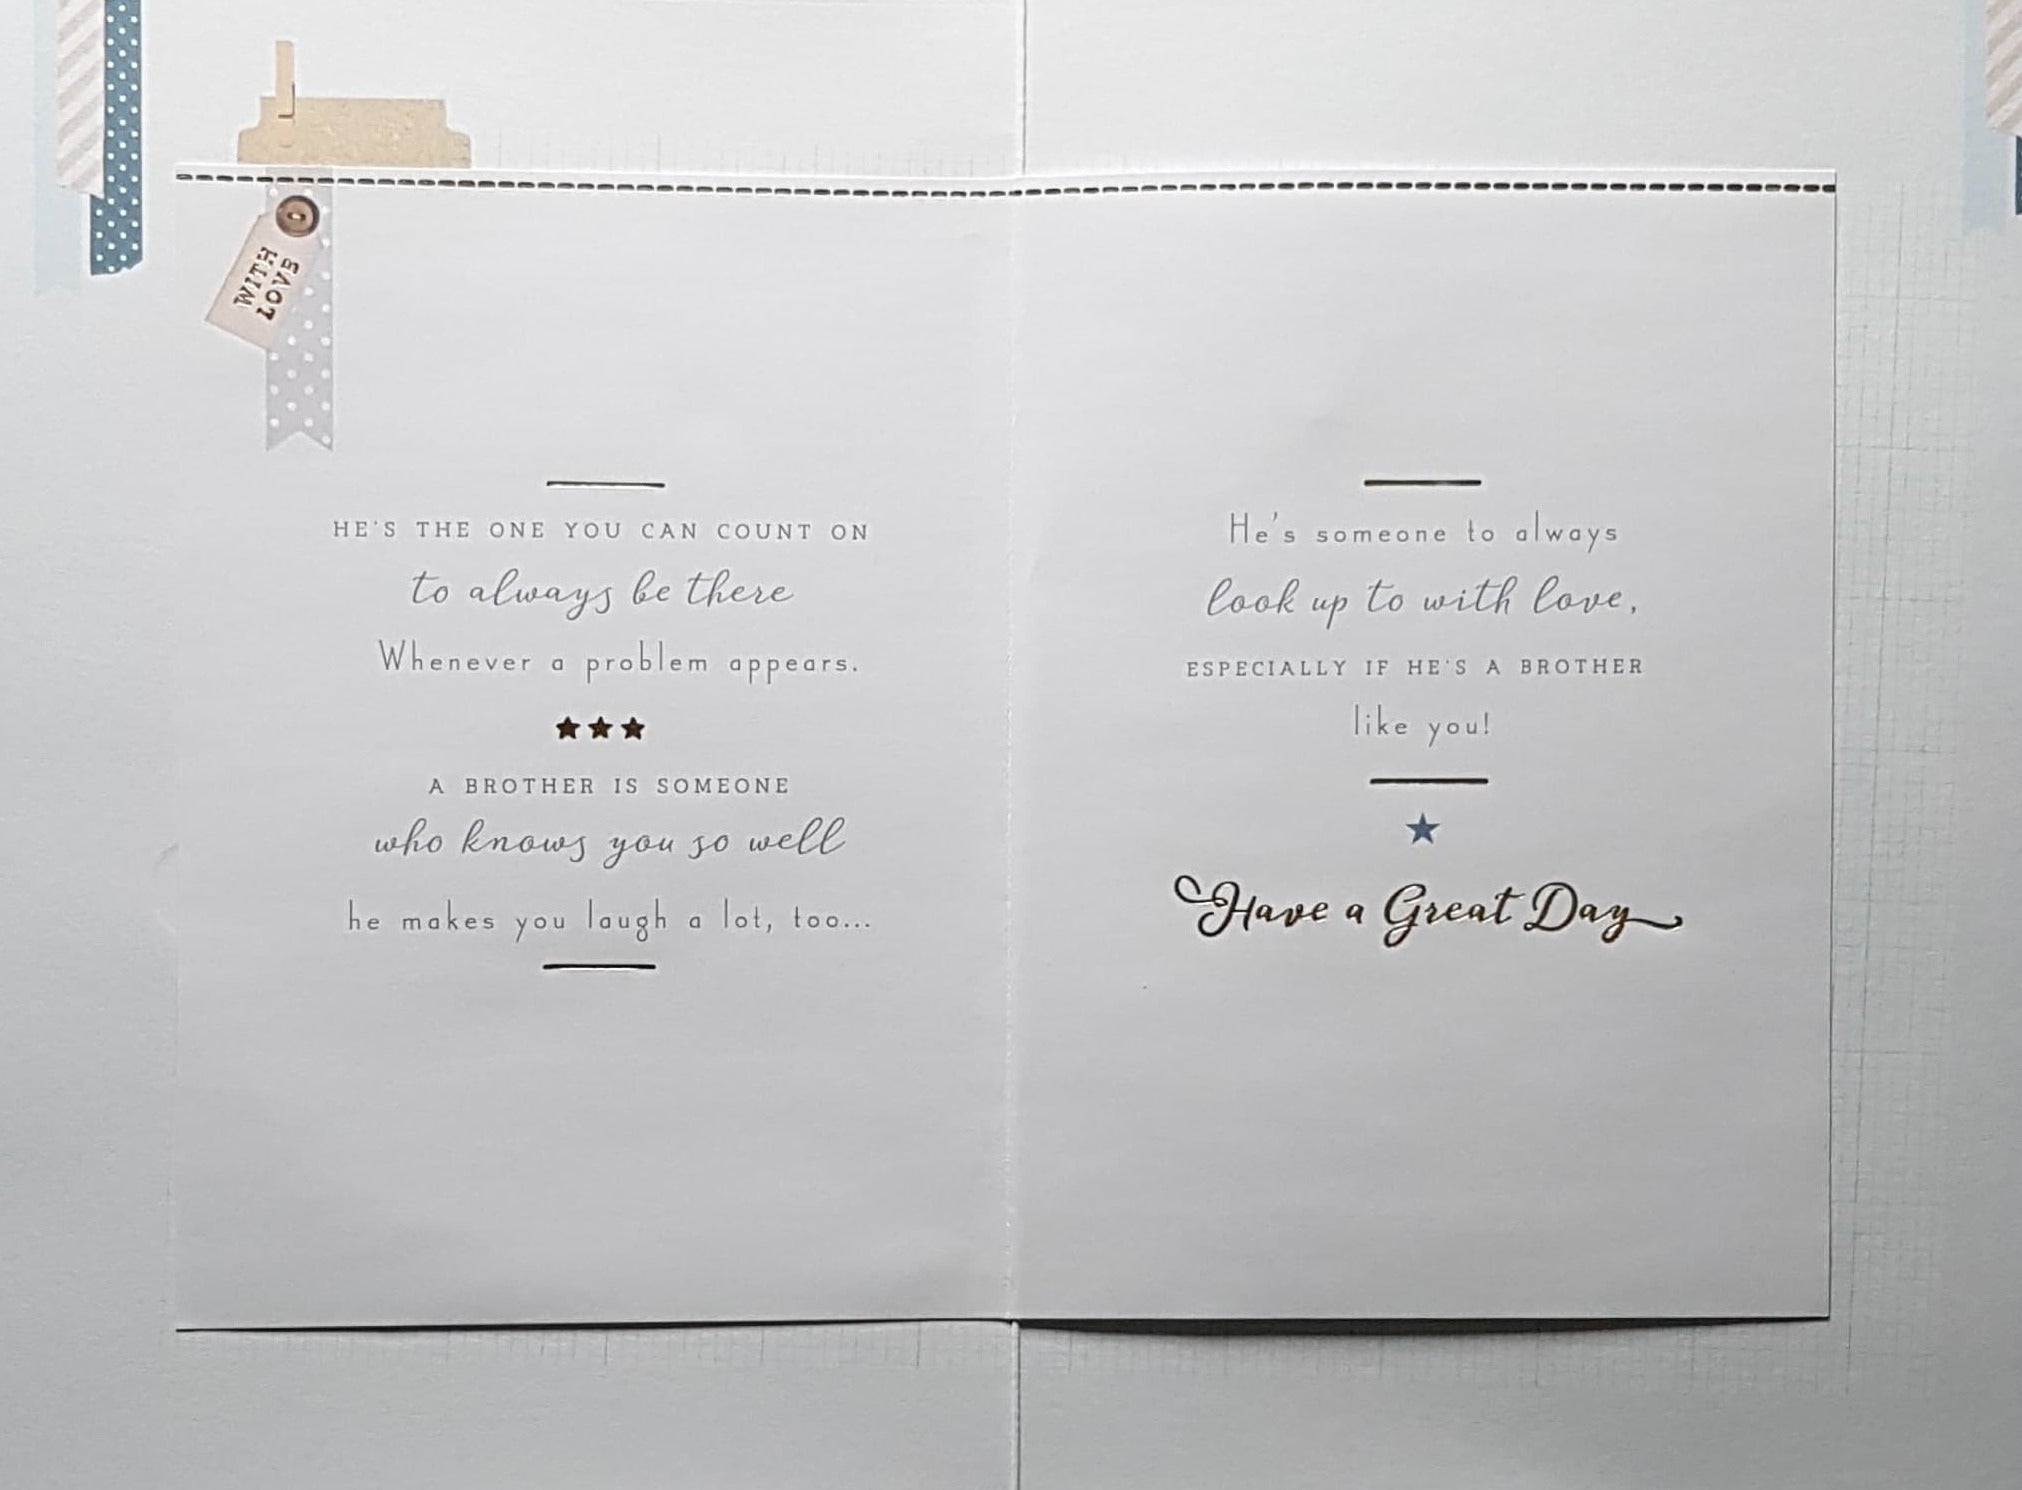 WITH
LOVE
HE'S THE ONE YOU CAN COUNT ON
to always be there
Whenever a problem appears.
A BROTHER IS SOMEONE
who knows you so well
he makes you laugh a lot, too...
He's someone to always
look up to with love,
ESPECIALLY IF HE'S A BROTHER
like you!
Have a Great Day